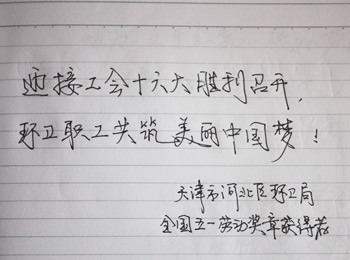 迎接工会十六大胜利召开，
环卫职工共筑美丽中国梦！
天津市河北区环卫局
全国五一劳动奖章获得者